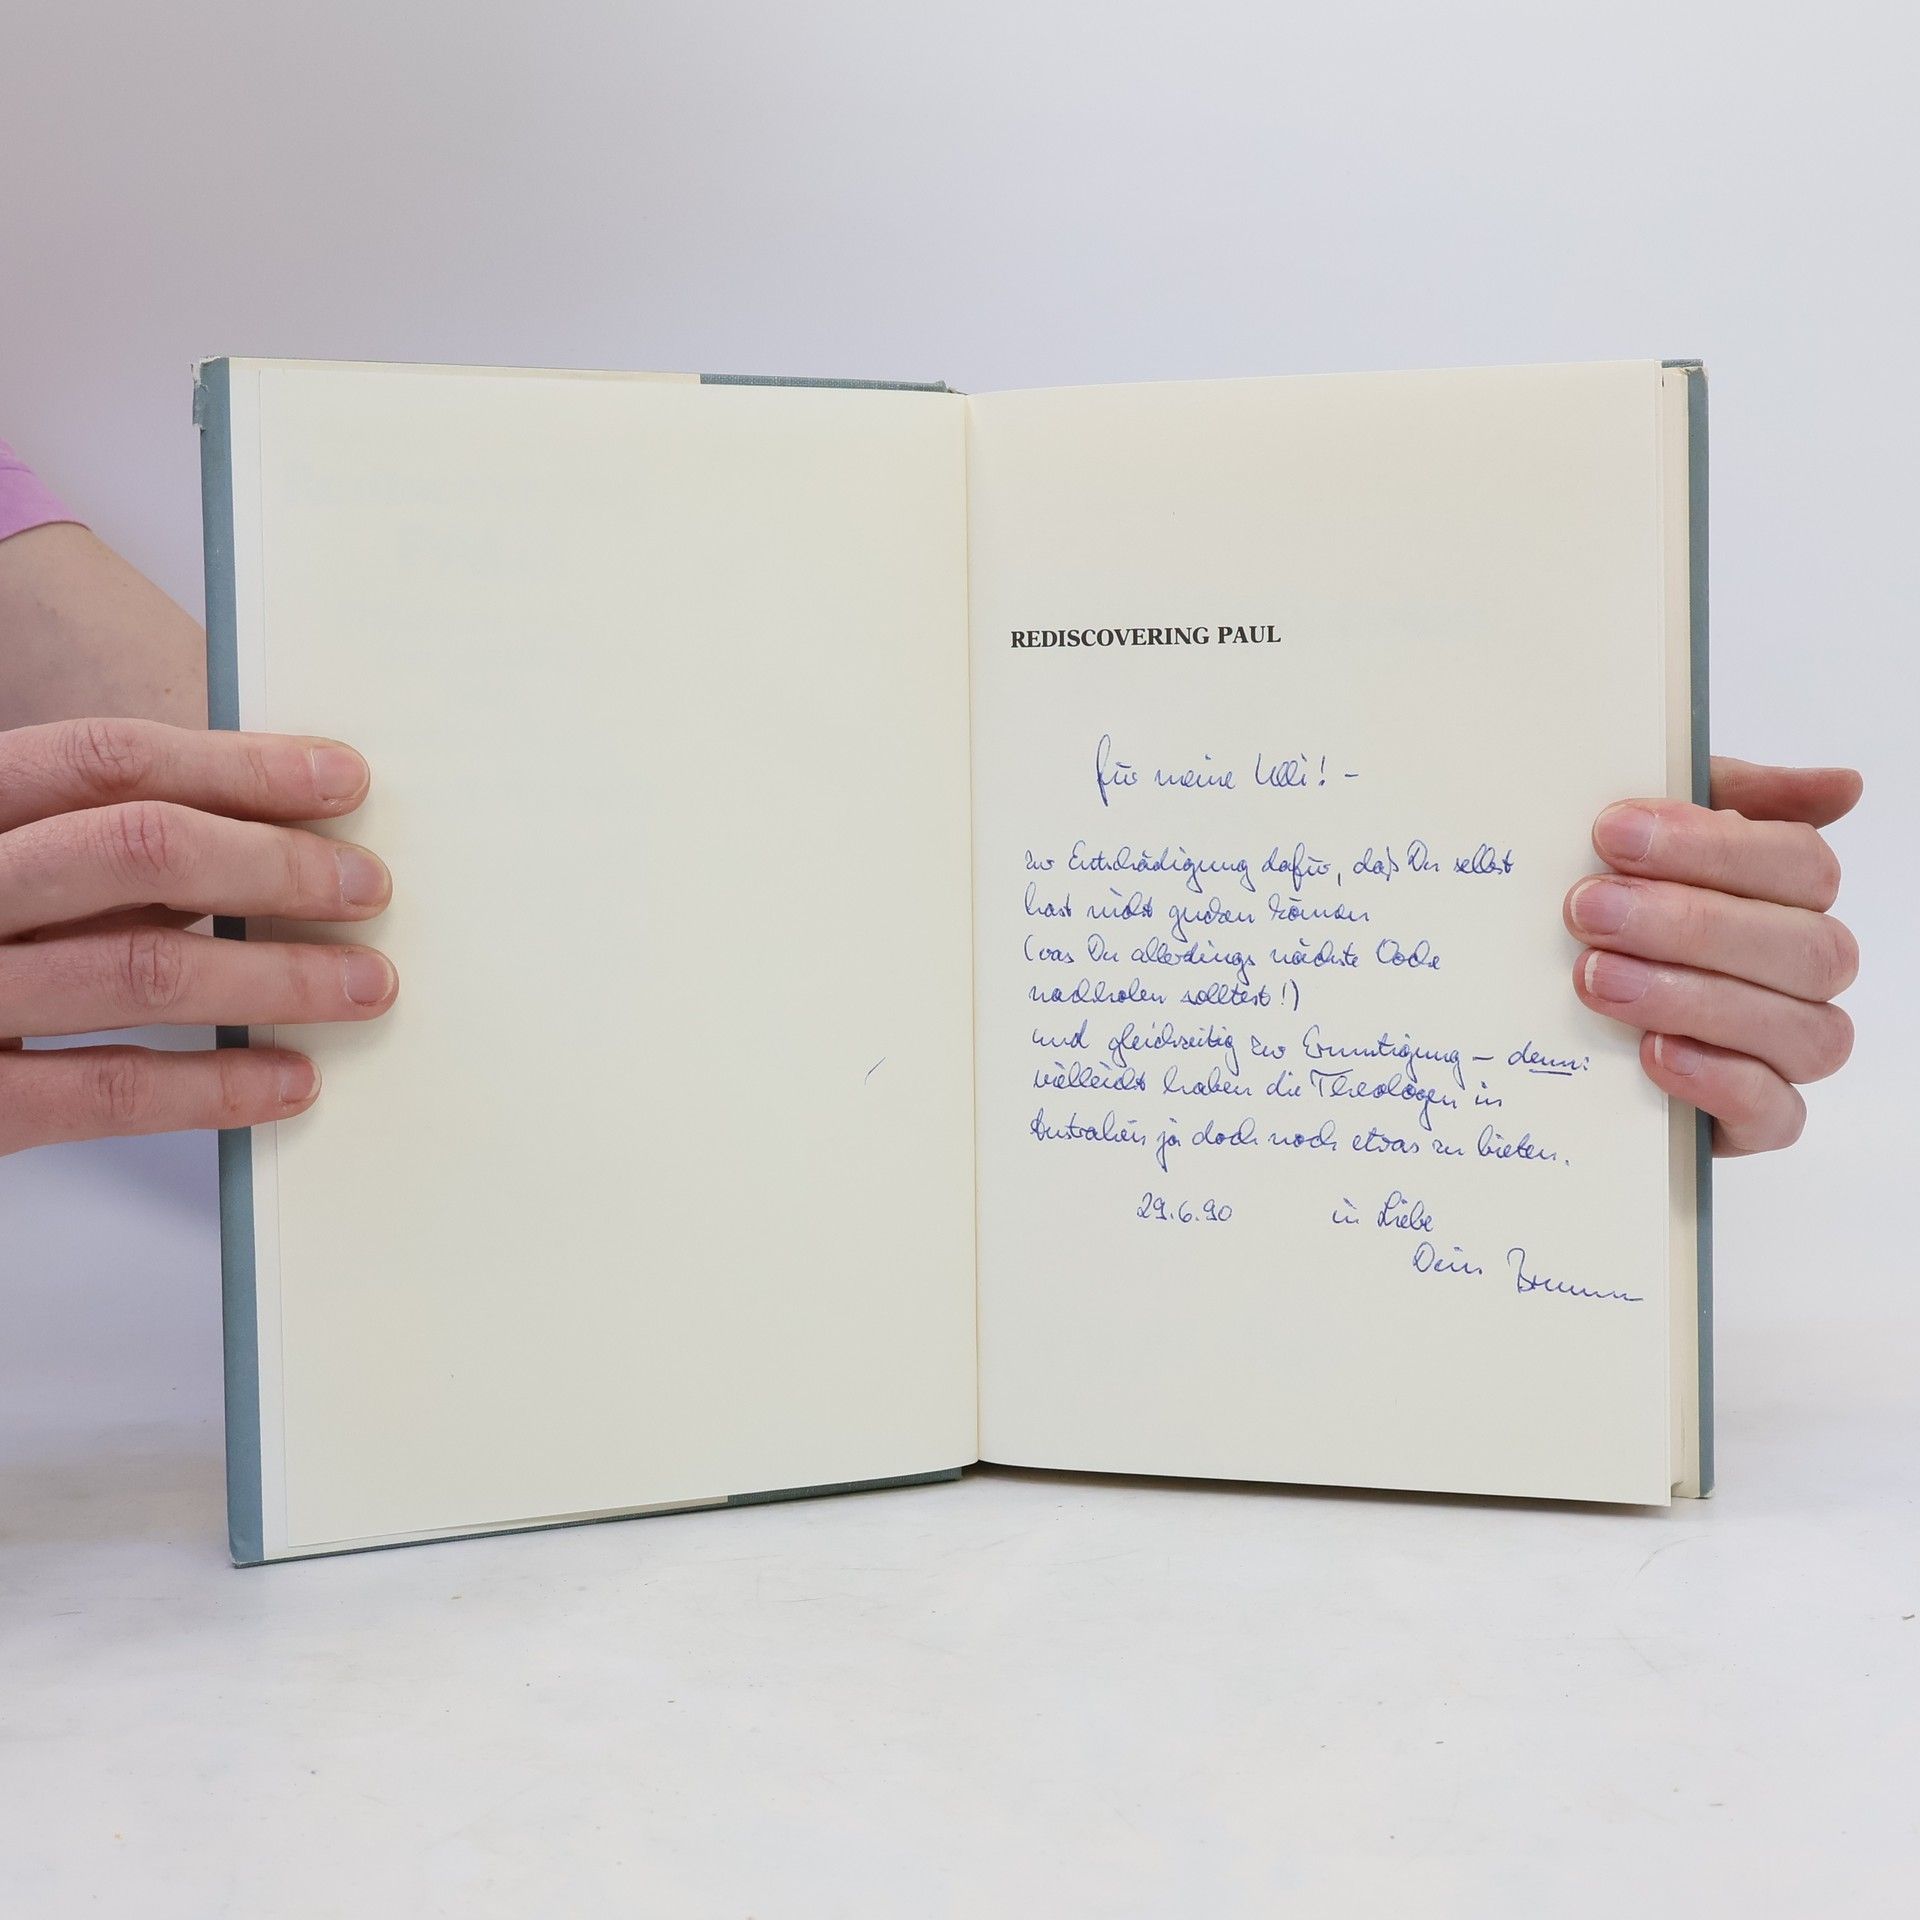 REDISCOVERING PAUL
für meine Ulli! –
zur Entschädigung dafür, daß Du selbst
hast nicht gucken können
(was Du allerdings nächste Woche
nachholen solltest!)
und gleichzeitig zur Ermutigung – denn:
vielleicht haben die Theologen in
Australien ja doch noch etwas zu bieten.
29.6.90 in Liebe
Dein